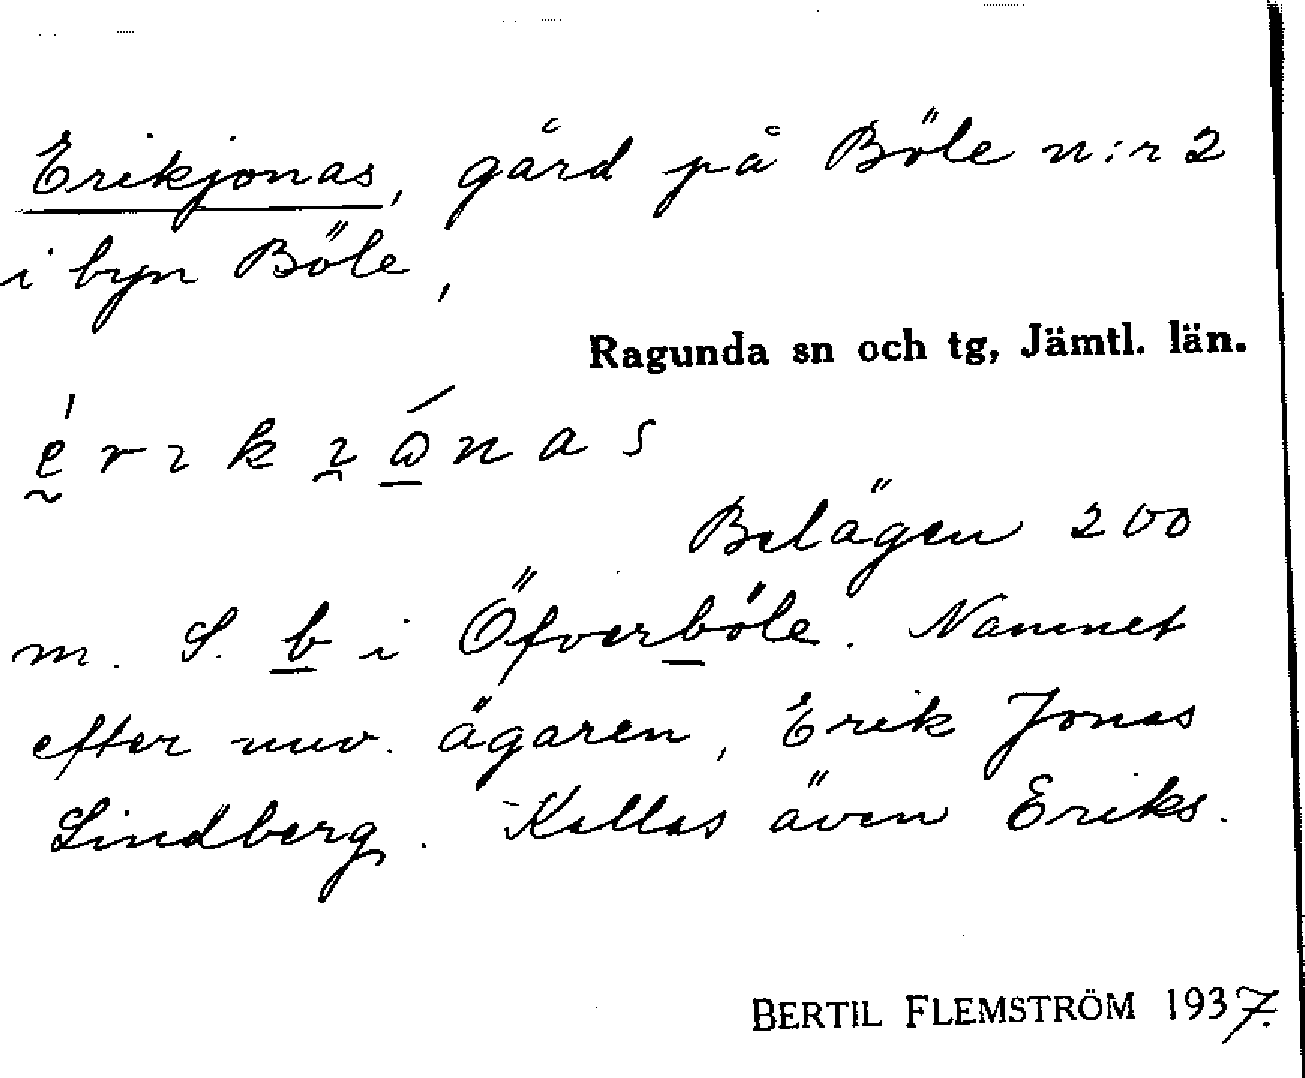 Erikjonas, gård på Böle n:r 2
i byn Böle,
Ragunda sn och tg, Jämtl. län.
Belägen 200
m. S. b i Öfverböle. Namnet
efter nuv. ägaren, Erik Jonas
Lindberg. Kallas även Eriks.
BERTIL FLEMSTRÖM 1937.